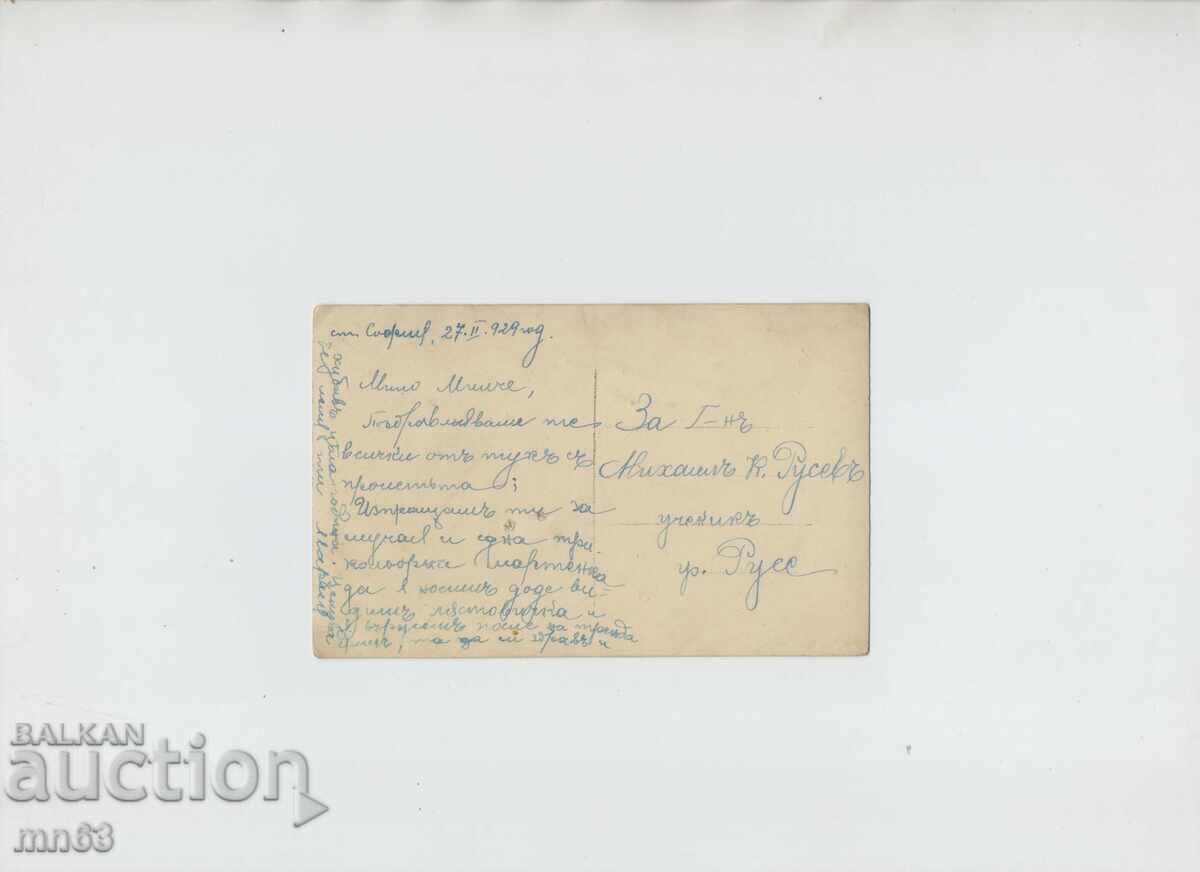 ст. София, 27.II.929 год.
Мило Минче,
Поздравляваме те
всички отъ тукъ съ
пролѣтьта;
Изпращамъ ти за
случая и една три-
кольорка мартенка
да я носишъ додѣ ви-
дишъ лястовичка и
хвърлишъ после на
та да си здравъ и
хубавъ цѣла година.
За Г-нъ
Михаилъ К. Русевъ
ученикъ
гр. Русе
BALKAN
auction
mn63